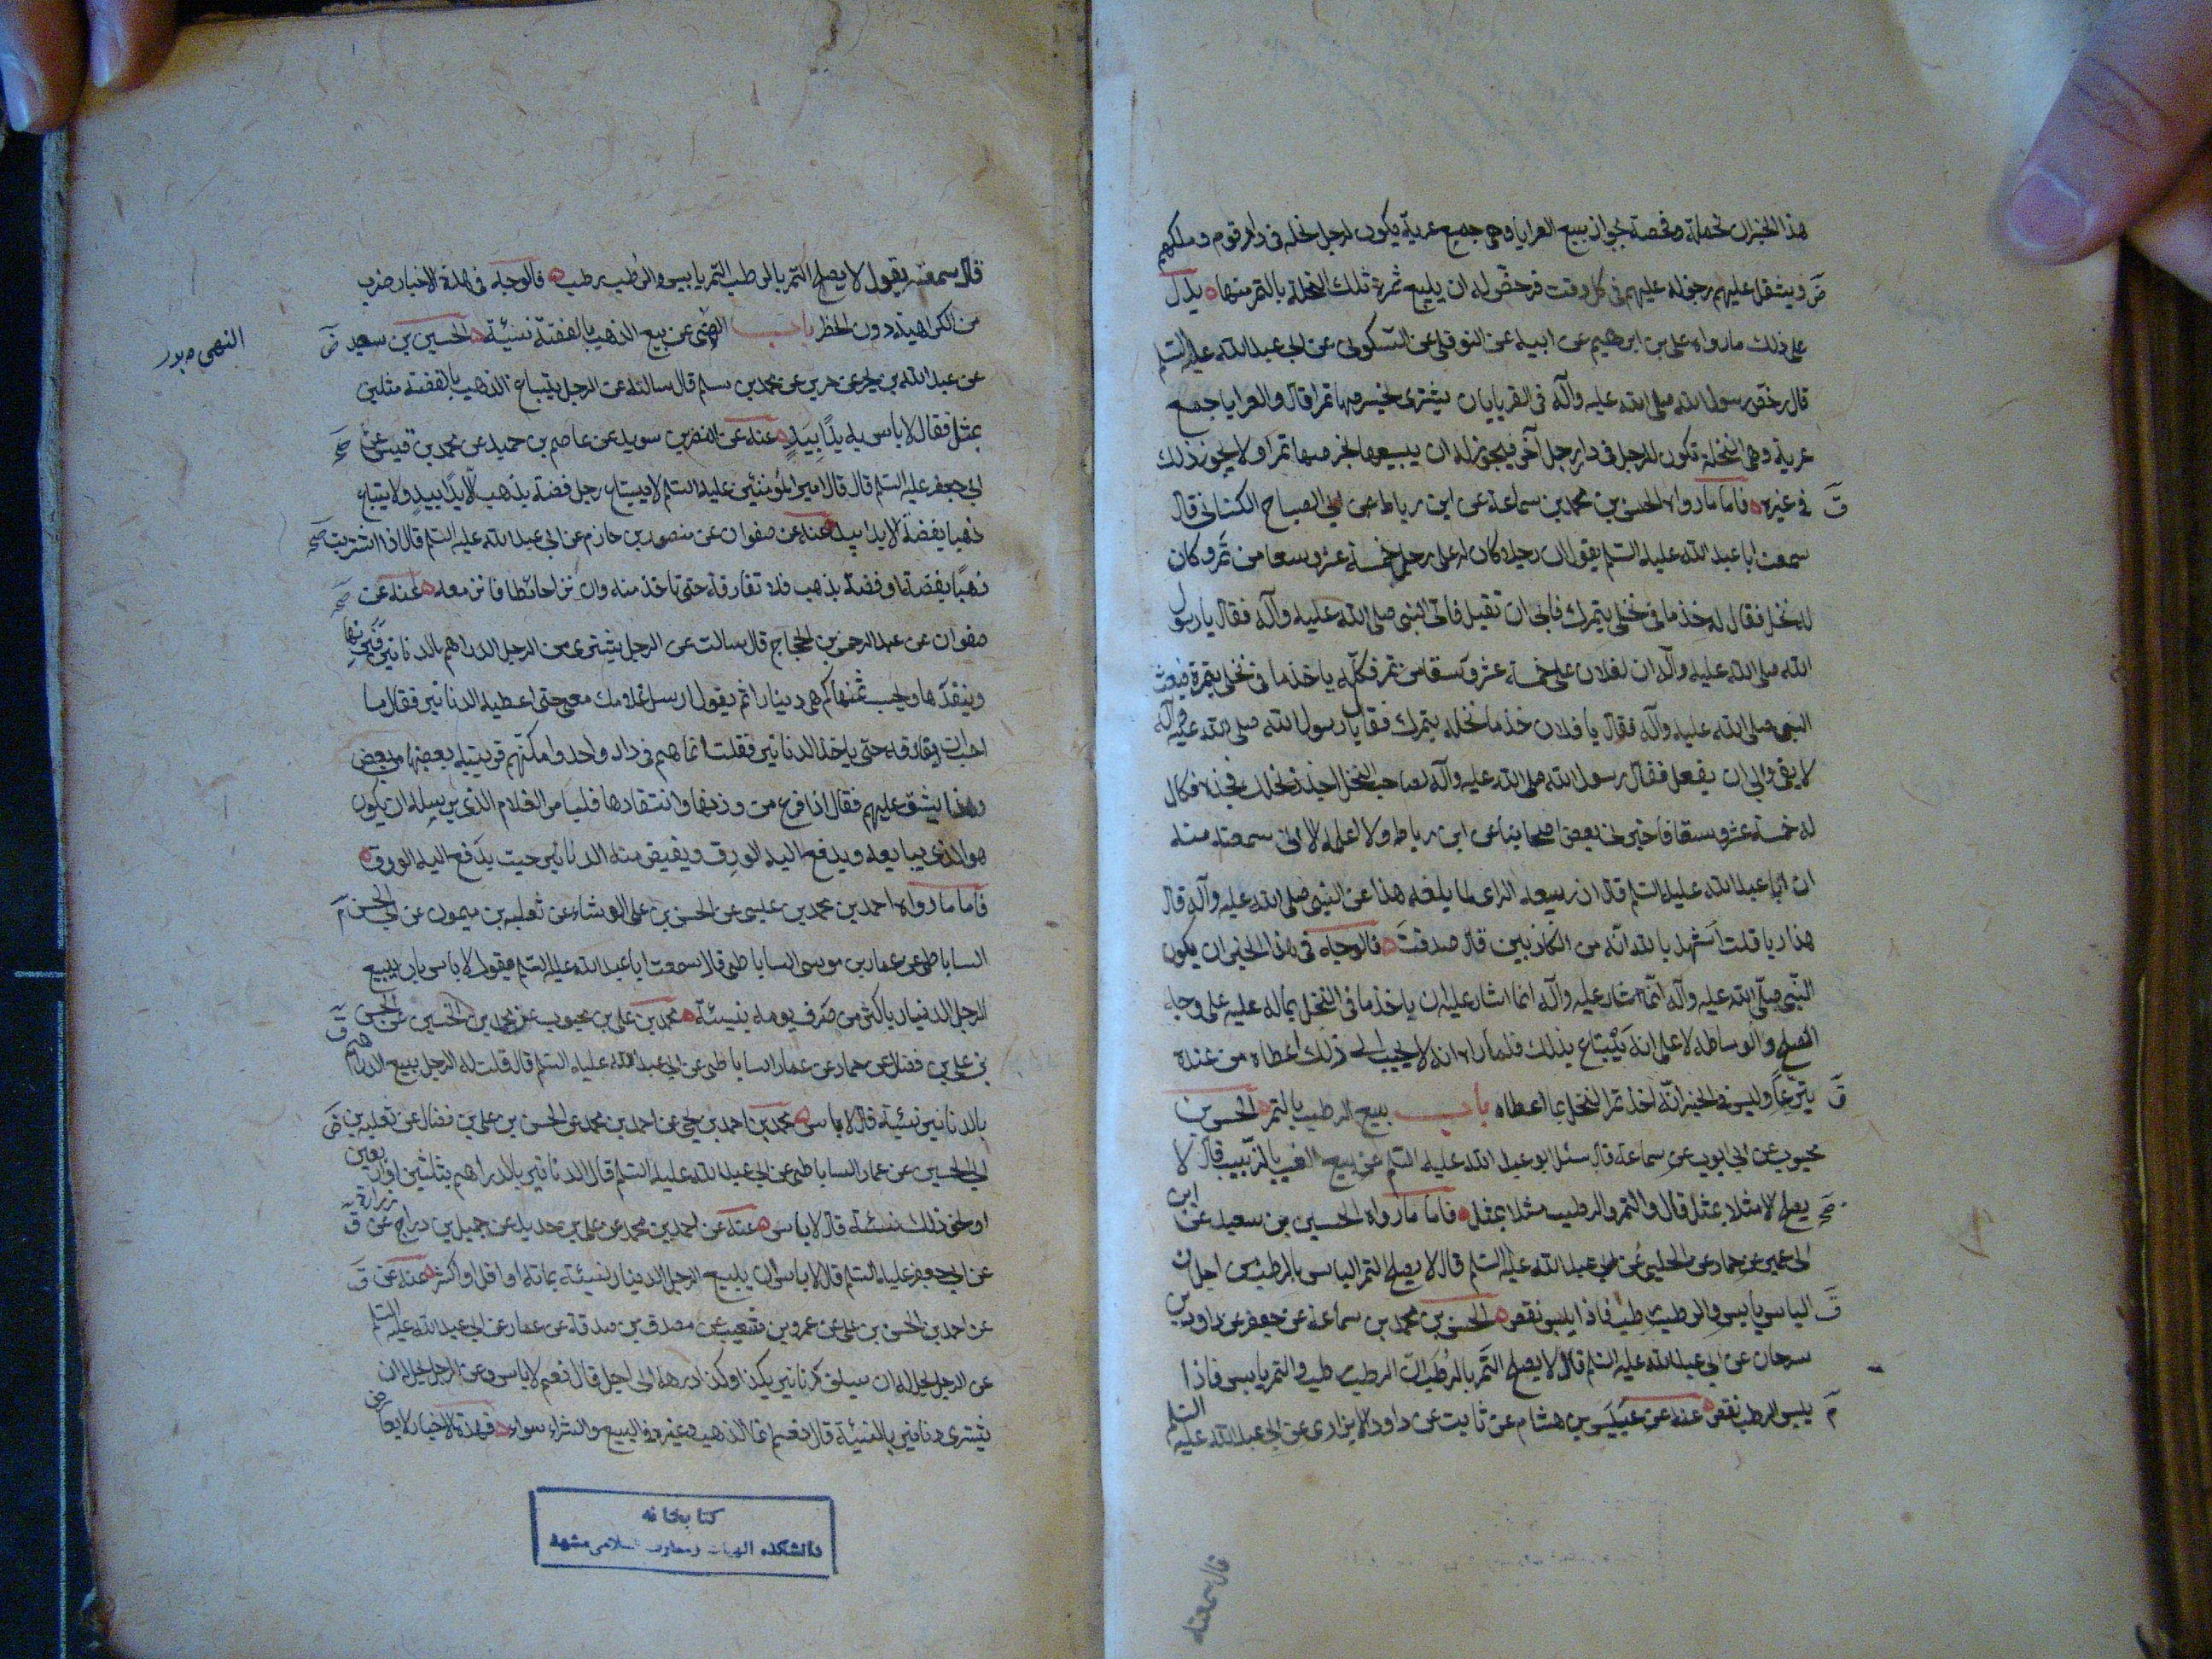 هذا الخبران محملة رخصة بجواز بيع العرايا وهى جمع عرية يكون لرجل نخلة فى دار قوم وملكهم
ض ويشقل عليهم دخوله عليهم فى كل وقت فرخص له ان يبيع ثمرة تلك النخلة بالتمر منها ه يدل
على ذلك ما رواه على بن ابرهيم عن ابيه عن النوفلى عن السكونى عن ابى عبد الله عليه السلم
قال رخص رسول الله صلى الله عليه وآله فى العرايا بان يشترى بخرصها تمرا قال والعرايا جمع
عرية وهى النخلة تكون للرجل فى دار رجل آخر فيجوز له ان يبيعها بخرصها تمرا ولا يجوز ذلك
ق فى غيره ه فاما ما رواه الحسن بن محمد بن سماعة عن ابن رباط عن ابى الصباح الكنانى قال
سمعت ابا عبد الله عليه السلم يقول ان رجلا كان له على رجل خمسة عشر وسقا من تمر وكان
له نخل فقال له خذ ما فى نخلى بتمرك فابى ان تقبل فاتى النبى صلى الله عليه وآله فقال يا رسول
الله صلى الله عليه وآله ان لفلان على خمسة عشر وسقا من تمر فكلمه ياخذ ما فى نخلى بتمره فبعث
النبى صلى الله عليه وآله فقال يا فلان خذ ما نخله بتمرك فقال يا رسول الله صلى الله عليه وآله
لا يفى وابى ان يفعل فقال رسول الله صلى الله عليه وآله لصاحب النخل اجذذ نخلك فجذه فكال
له خمسة عشر وسقا فاخبرنى بعض اصحابنا عن ابن رباط ولا اعلمه الا انى سمعته منه
ان ابا عبد الله عليه السلم قال ان ربيعه الراى لما بلغه هذا عن النبى صلى الله عليه وآله قال
هذا ربا قلت اشهد بالله انه من الكاذبين قال صدقت ه فالوجه فى هذا الخبر ان يكون
النبى صلى الله عليه وآله انما اشار عليه وآله انما اشار عليه ان ياخذ ما فى النخل بماله عليه على وجه
الصلح والوساطه لا على انه يبتاع بذلك فلما راه انه لا يجيب الى ذلك اعطاه من عنده
ق تبرعا وليس فى الخبر انه اخذ تمر النخل بما اعطاه باب بيع الرطب بالتمر ه الحسن بن
محبوب عن ابى ايوب عن سماعة قال سئل ابو عبد الله عليه السلم عن بيع العنب بالزبيب قال لا
صح يصلح الا مثلا بمثل قال والتمر والرطب مثلا بمثل ه فاما ما رواه الحسين بن سعيد عن ابن
ابى عمير عن حماد عن الحلبى عن ابى عبد الله عليه السلم قال لا يصلح التمر اليابس بالرطب من اجل ان
ق اليابس يابس والرطب رطب فاذا يبس نقص ه الحسن بن محمد بن سماعة عن جعفر عن داود بن
سرحان عن ابى عبد الله عليه السلم قال لا يصلح التمر بالرطب ان الرطب رطب والتمر يابس فاذا
م يبس الرطب نقص ه عنه عن عبيس بن هشام عن ثابت عن داود الابزارى عن ابى عبد الله عليه السلم
قال سمعته
قال سمعته يقول لا يصلح التمر بالرطب التمر يابس والرطب رطب ه فالوجه فى هذه الاخبار ضرب
من الكراهية دون الحظر باب النهى عن بيع الذهب بالفضة نسئية ه الحسين بن سعيد ض
النهى
عن عبد الله بن بحر عن حريز عن محمد بن مسلم قال سالته عن الرجل يبتاع الذهب بالفضة مثلين
بمثل فقال لا باس به يدا بيد ه عنه عن النضر بن سويد عن عاصم بن حميد عن محمد بن قيس عن صح
ابى جعفر عليه السلم قال قال امير المؤمنين عليه السلم لا يبتاع رجل فضة بذهب الا يدا بيد ولا يبتاع
ذهبا بفضة الا يدا بيد ه عنه عن صفوان عن منصور بن حازم عن ابى عبد الله عليه السلم قال اذا اشتريت صح
ذهبا بفضة او فضة بذهب فلا تفارقه حتى تاخذ منه وان نزا حائطا فانز معه ه عنه عن صح
صفوان عن عبد الرحمن بن الحجاج قال سالت عن الرجل يشترى من الرجل الدراهم بالدنانير فيزنها
وينقدها ويحسب ثمنها كم هى دينارا ثم يقول ارسل غلامك معى حتى اعطيه الدنانير فقال ما
احب ان يفارقه حتى ياخذ الدنانير فقلت انما هم فى دار واحد وامكنتهم قريبة بعضها من بعض
وهذا يشق عليهم فقال اذا فرغ من وزنها وانتقادها فليامر الغلام الذى يرسله ان يكون
هو الذى يبايعه ويدفع اليه الورق ويقبض منه الدنانير حيث يدفع اليه الورق ه
فاما ما رواه احمد بن محمد بن عيسى عن الحسن بن على الوشاء عن ثعلبه بن ميمون عن ابى الحسن م
الساباطى عن عمار بن موسى الساباطى قال سمعت ابا عبد الله عليه السلم يقول لا باس بان يبيع
الرجل الدنيار باكثر من صرف يومه نسيئة ه محمد بن على بن محبوب عن محمد بن الحسين عن الحسن ق
بن على بن فضال عن حماد عن عمار الساباطى عن ابى عبد الله عليه السلم قال قلت له الرجل يبيع الدراهم
بالدنانير نسئية قال لا باس ه محمد بن احمد بن يحيى عن احمد بن محمد عن الحسن بن على بن فضال عن ثعلبه بن ض
ابى الحسين عن عمار الساباطى عن ابى عبد الله عليه السلم قال الدنانير بالدراهم بثلثين او اربعين
او نحو ذلك نسئية قال لا باس ه عنه عن احمد بن محمد عن على بن حديد عن جميل بن دراج عن زرارة ق
عن ابى جعفر عليه السلم قال لا باس ان يبيع الرجل الدينار نسئية بمائة او اقل او اكثر ه عنه عن ق
عن احمد بن الحسن بن على عن عمرو بن سعيد عن مصدق بن صدقة عن عمار عن ابى عبد الله عليه السلم
عن الرجل يحل له ان يسلف دنانير بكذا وكذا درهما الى اجل قال نعم لا باس وعن الرجل يحل له ان
يشترى دنانير بالنسئية قال نعم انما الذهب وغيره فى البيع والشراء سواء ه فهذه الاخبار لا يعارض
كتابخانه
دانشكده الهيات ومعارف اسلامى مشهد